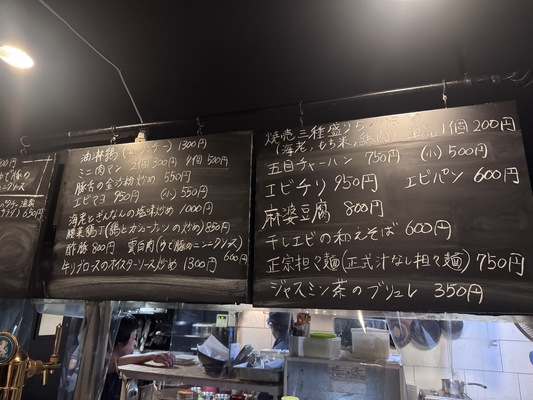 油淋鶏 1300円
ミニ肉マン 2個300円 4個500円
豚舌の金沙粉炒め 550円
エビマヨ 950円 (小)550円
海老とぎんなんの塩味炒め 1000円
腰果鶏丁(鶏とカシューナッツの炒め)850円
酢豚 800円 雲白肉(ゆで豚のニンニクソース)
600円
牛リブロースのオイスターソース炒め 1300円
焼売三種盛り
(海老、もち米、 1個200円
五目チャーハン 750円 (小)500円
エビチリ 950円 エビパン 600円
麻婆豆腐 800円
干しエビの和えそば 600円
正宗担々麺(正式汁なし担々麺)750円
ジャスミン茶のブリュレ 350円